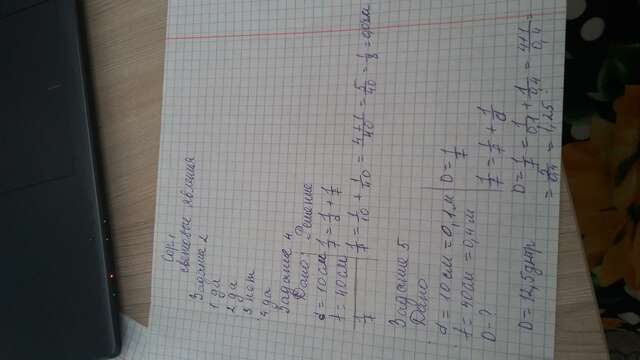 световые явления
Задание 2
1 да
2 да
3 нет
4 да
Задание 4
Дано: Решение
d = 10 см 1/F = 1/d + 1/f
f = 40 см 1/F = 1/10 + 1/40 = 4+1/40 = 5/40 = 1/8
Задание 5
Дано
d = 10 см = 0,1 м D = 1/F
f = 40 см = 0,4 м 1/F = 1/f + 1/d
D = ? D = 1/F = 1/0,1 + 1/0,4 = 4+1/0,4 =
= 5/0,4 = 1,25
D = 12,5 дптр